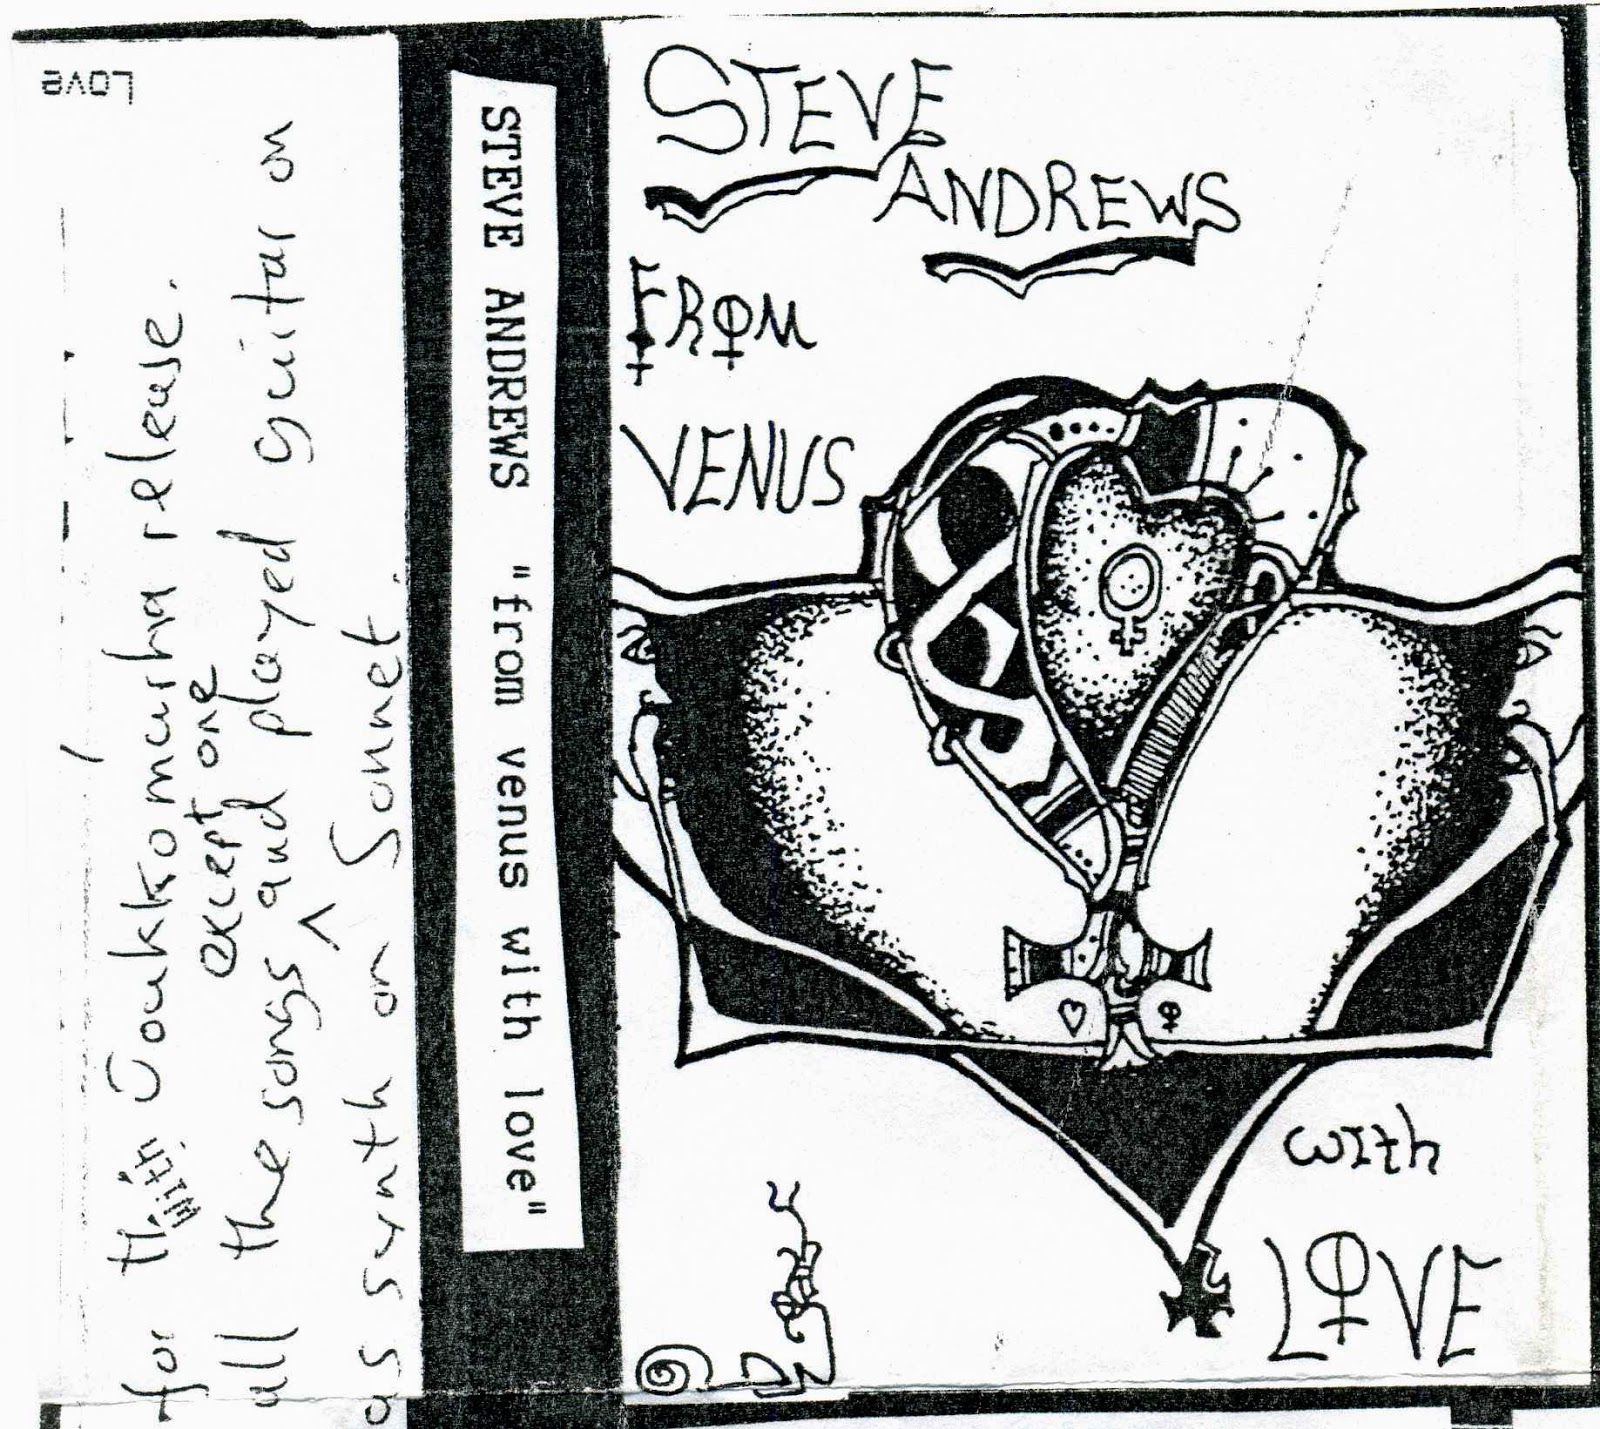 STEVE
ANDREWS
FROM
VENUS
with
LOVE
STEVE ANDREWS "from venus with love"
Love
for this Joukkomurha release.
with
except one
all the songs ^ and played guitar on
as synth on Sonnet.